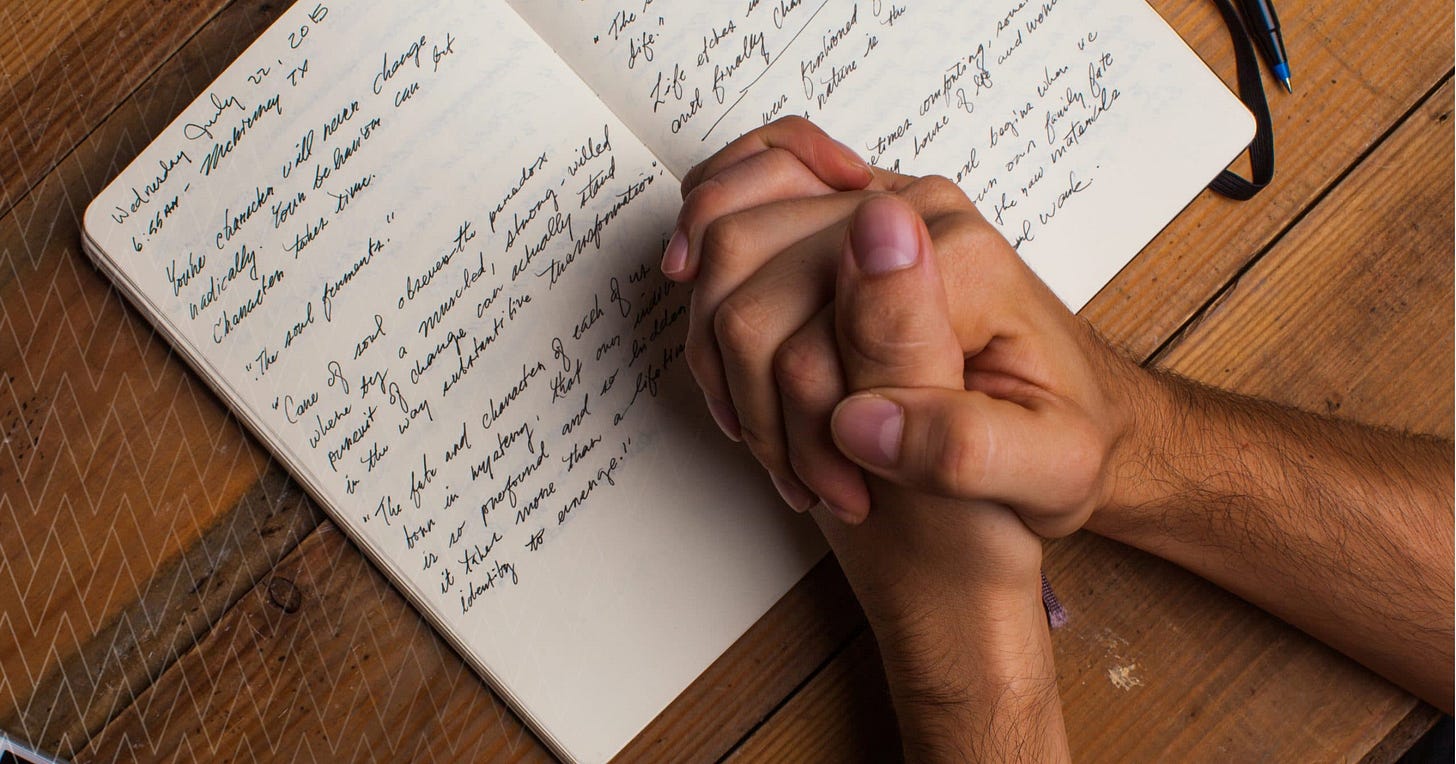 Wednesday July 22, 2015
6:55AM - McKinney TX
You're character will never change
radically. Your behavior can but
character takes time.
"The soul ferments."
"Care of soul observes the paradox
where by a muscled, strong-willed
pursuit of change can actually stand
in the way substantitive transformation"
"The fate and character of each of us is
born in mystery, that our indivi
is so profound and so hidden
it takes more than a lifetime
identity to emerge."
"The s
life."
Life etches in
and finally cha
was funtioned
nature is the
etimes comforting, som
house of life and wond
begins when we
our own family fate
the raw materials
work.